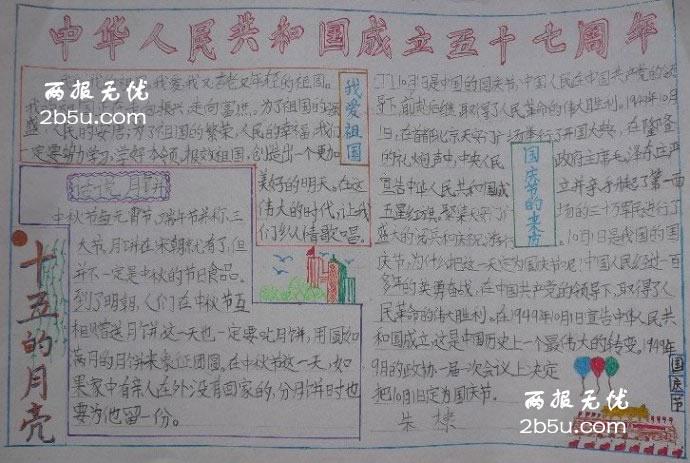 中华人民共和国成立五十七周年
两报无忧
2b5u.com
我爱祖国
我爱又古老又年轻的祖国。
走向振兴,走向富强。为了祖国的强
盛、人民的安居,为了祖国的繁荣、人民的幸福,我们
一定要努力学习,学好本领,报效祖国,创造出一个更加
美好的明天。在这
伟大的时代,让我
们纵情歌唱。
月饼
中秋节与元宵节、端午节并称三
大节。月饼在宋朝就有了,但
并不一定是中秋的节日食品。
到了明朝,人们在中秋节互
相赠送月饼,这一天也一定要吃月饼,用圆如
满月的月饼来象征团圆。在中秋节这一天,如
果家中有亲人在外没有回家的,分月饼时也
要为他留一份。
十五的月亮
国庆节的来历
10月1日是中国的国庆节,中国人民在中国共产党的领
导下,前赴后继,取得了人民革命的伟大胜利。1949年10月
1日,在首都北京天安门广场举行了开国大典,在隆隆
的礼炮声中,中央人民政府主席毛泽东庄严
宣告中华人民共和国成立并亲手升起了第一面
五星红旗,聚集天安门广场的三十万军民进行了
盛大的阅兵和庆祝游行。10月1日是我国的国
庆节,为什么把这一天定为国庆节呢?中国人民经过一百
多年的英勇奋战,在中国共产党的领导下,取得了人
民革命的伟大胜利。在1949年10月1日宣告中华人民共
和国成立,这是中国历史上一个最伟大的转变。1949年
9月的政协一届一次会议上决定
把10月1日定为国庆节。
国庆节
两报无忧
2b5u.com